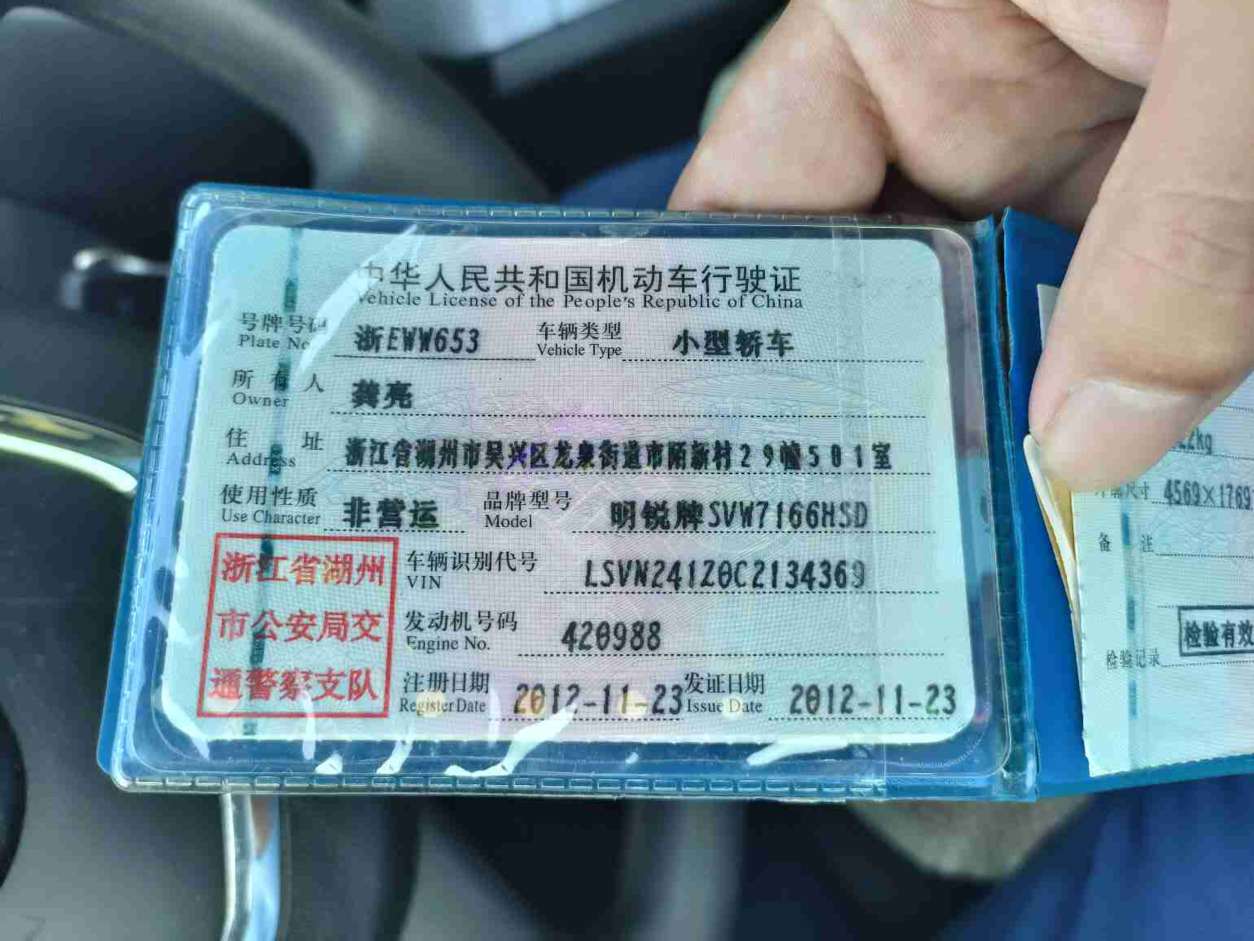 中华人民共和国机动车行驶证
Vehicle License of the People's Republic of China
号牌号码 浙EWW653 车辆类型 小型轿车
Plate No. Vehicle Type
所有人 龚亮
Owner
住址 浙江省湖州市吴兴区龙泉街道市陌新村29幢501室
Address
使用性质 非营运 品牌型号 明锐牌SVW7166HSD
Use Character Model
浙江省湖州
市公安局交
通警察支队
车辆识别代号 LSVN241Z0C2134369
VIN
发动机号码 420988
Engine No.
注册日期 2012-11-23 发证日期 2012-11-23
Register Date Issue Date
2kg
尺寸 4569×1769
备注
检验有效
检验记录